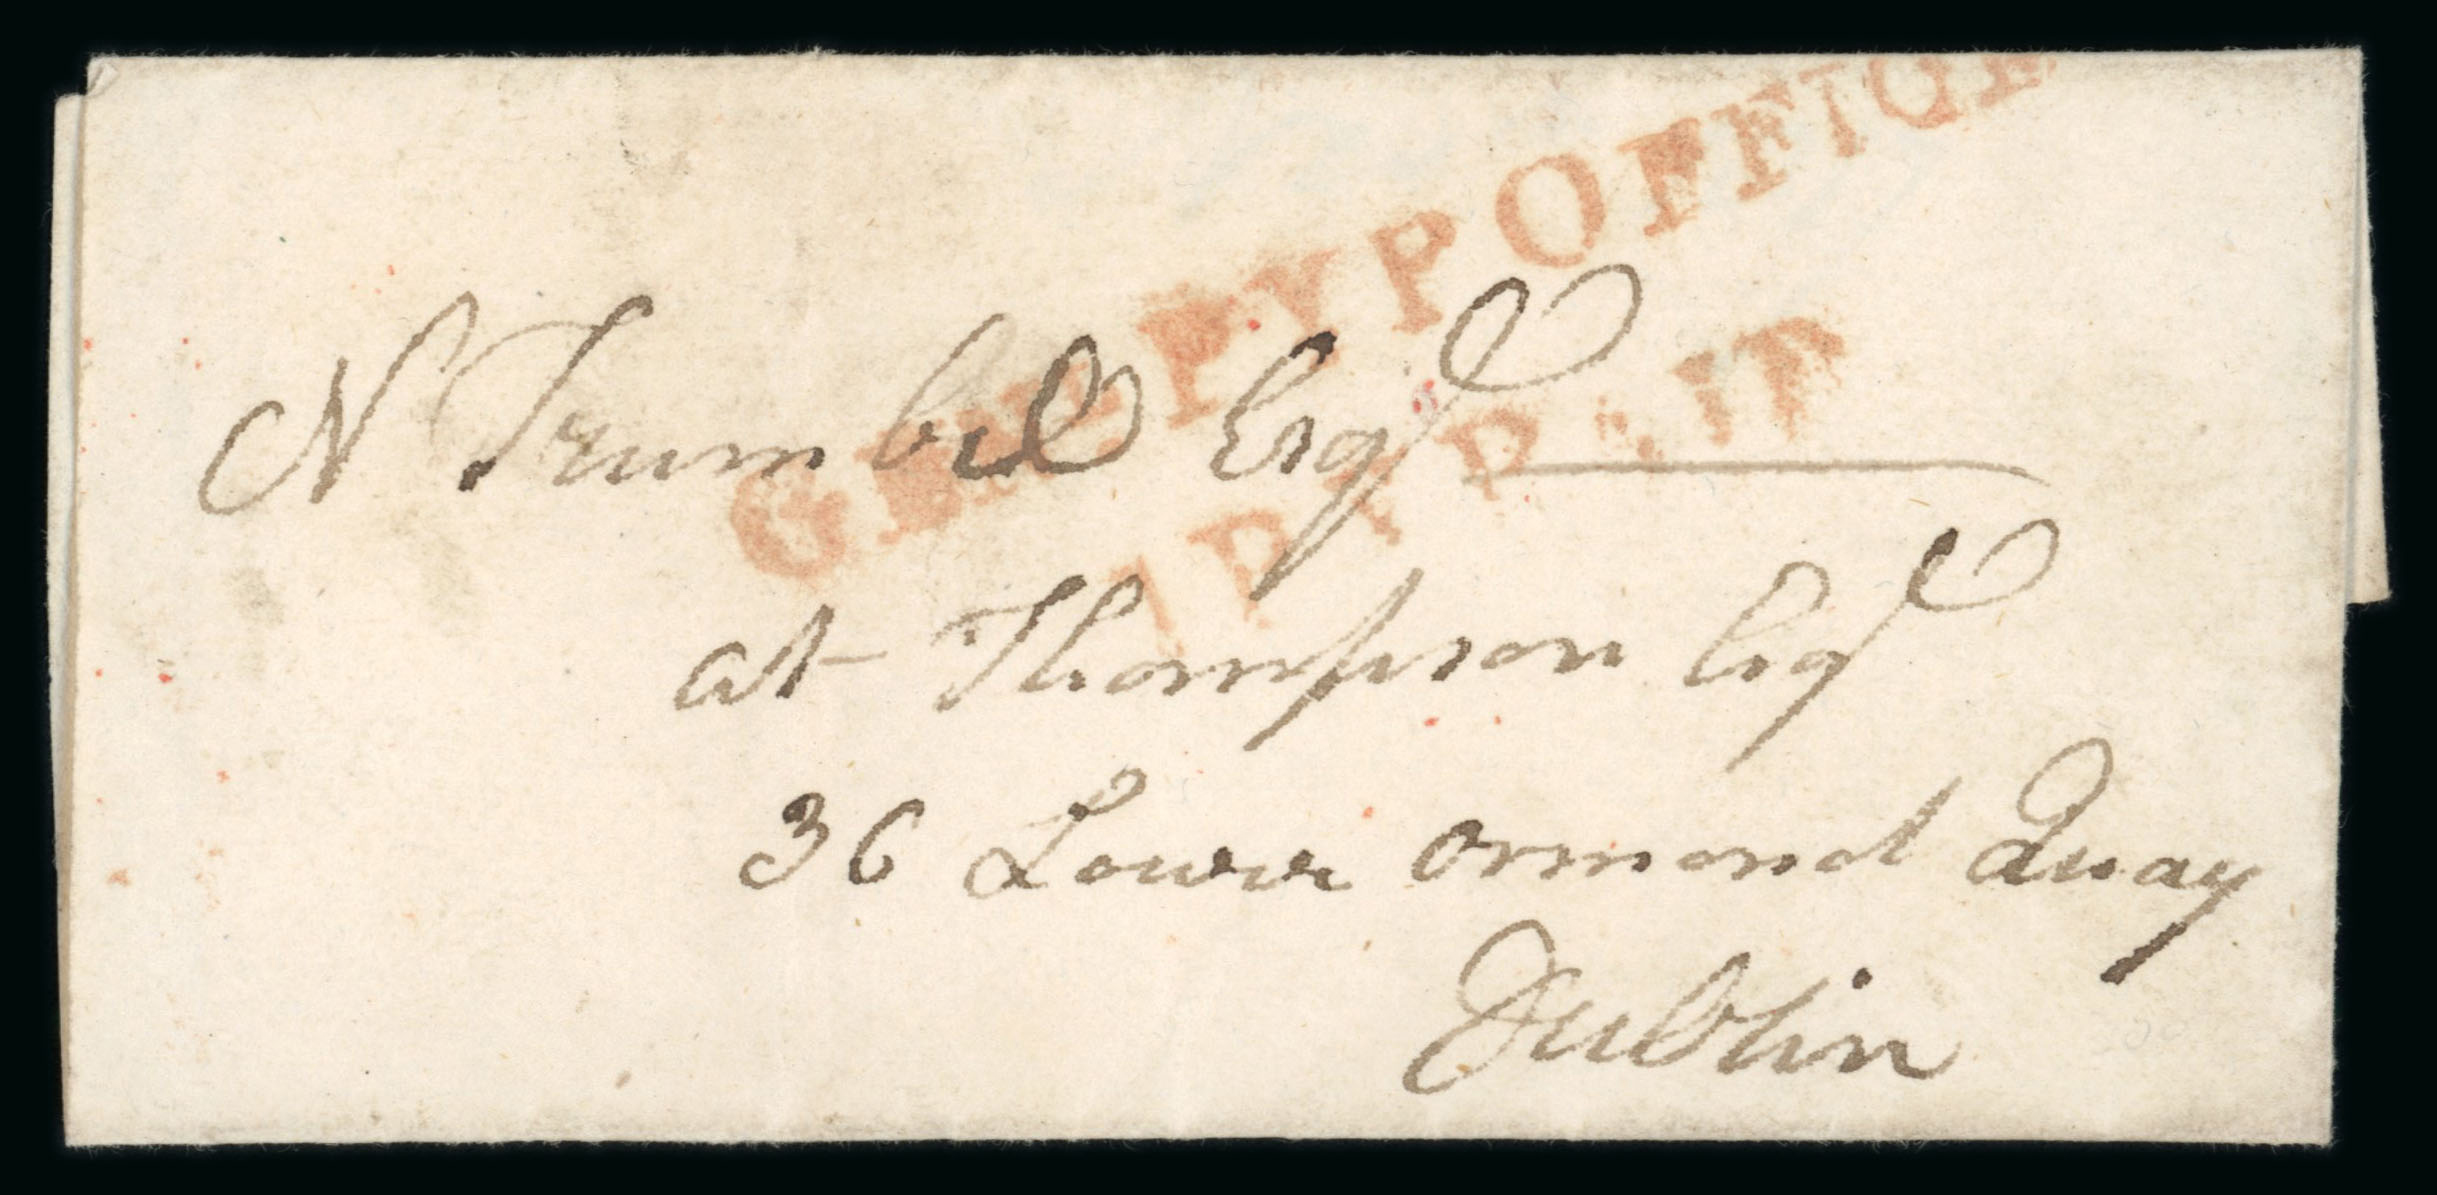 GEN. PY P OFFICE
1 PY PAID
N Trumbel Esqr
at Thompson Esqr
36 Lower ormond Quay
Dublin